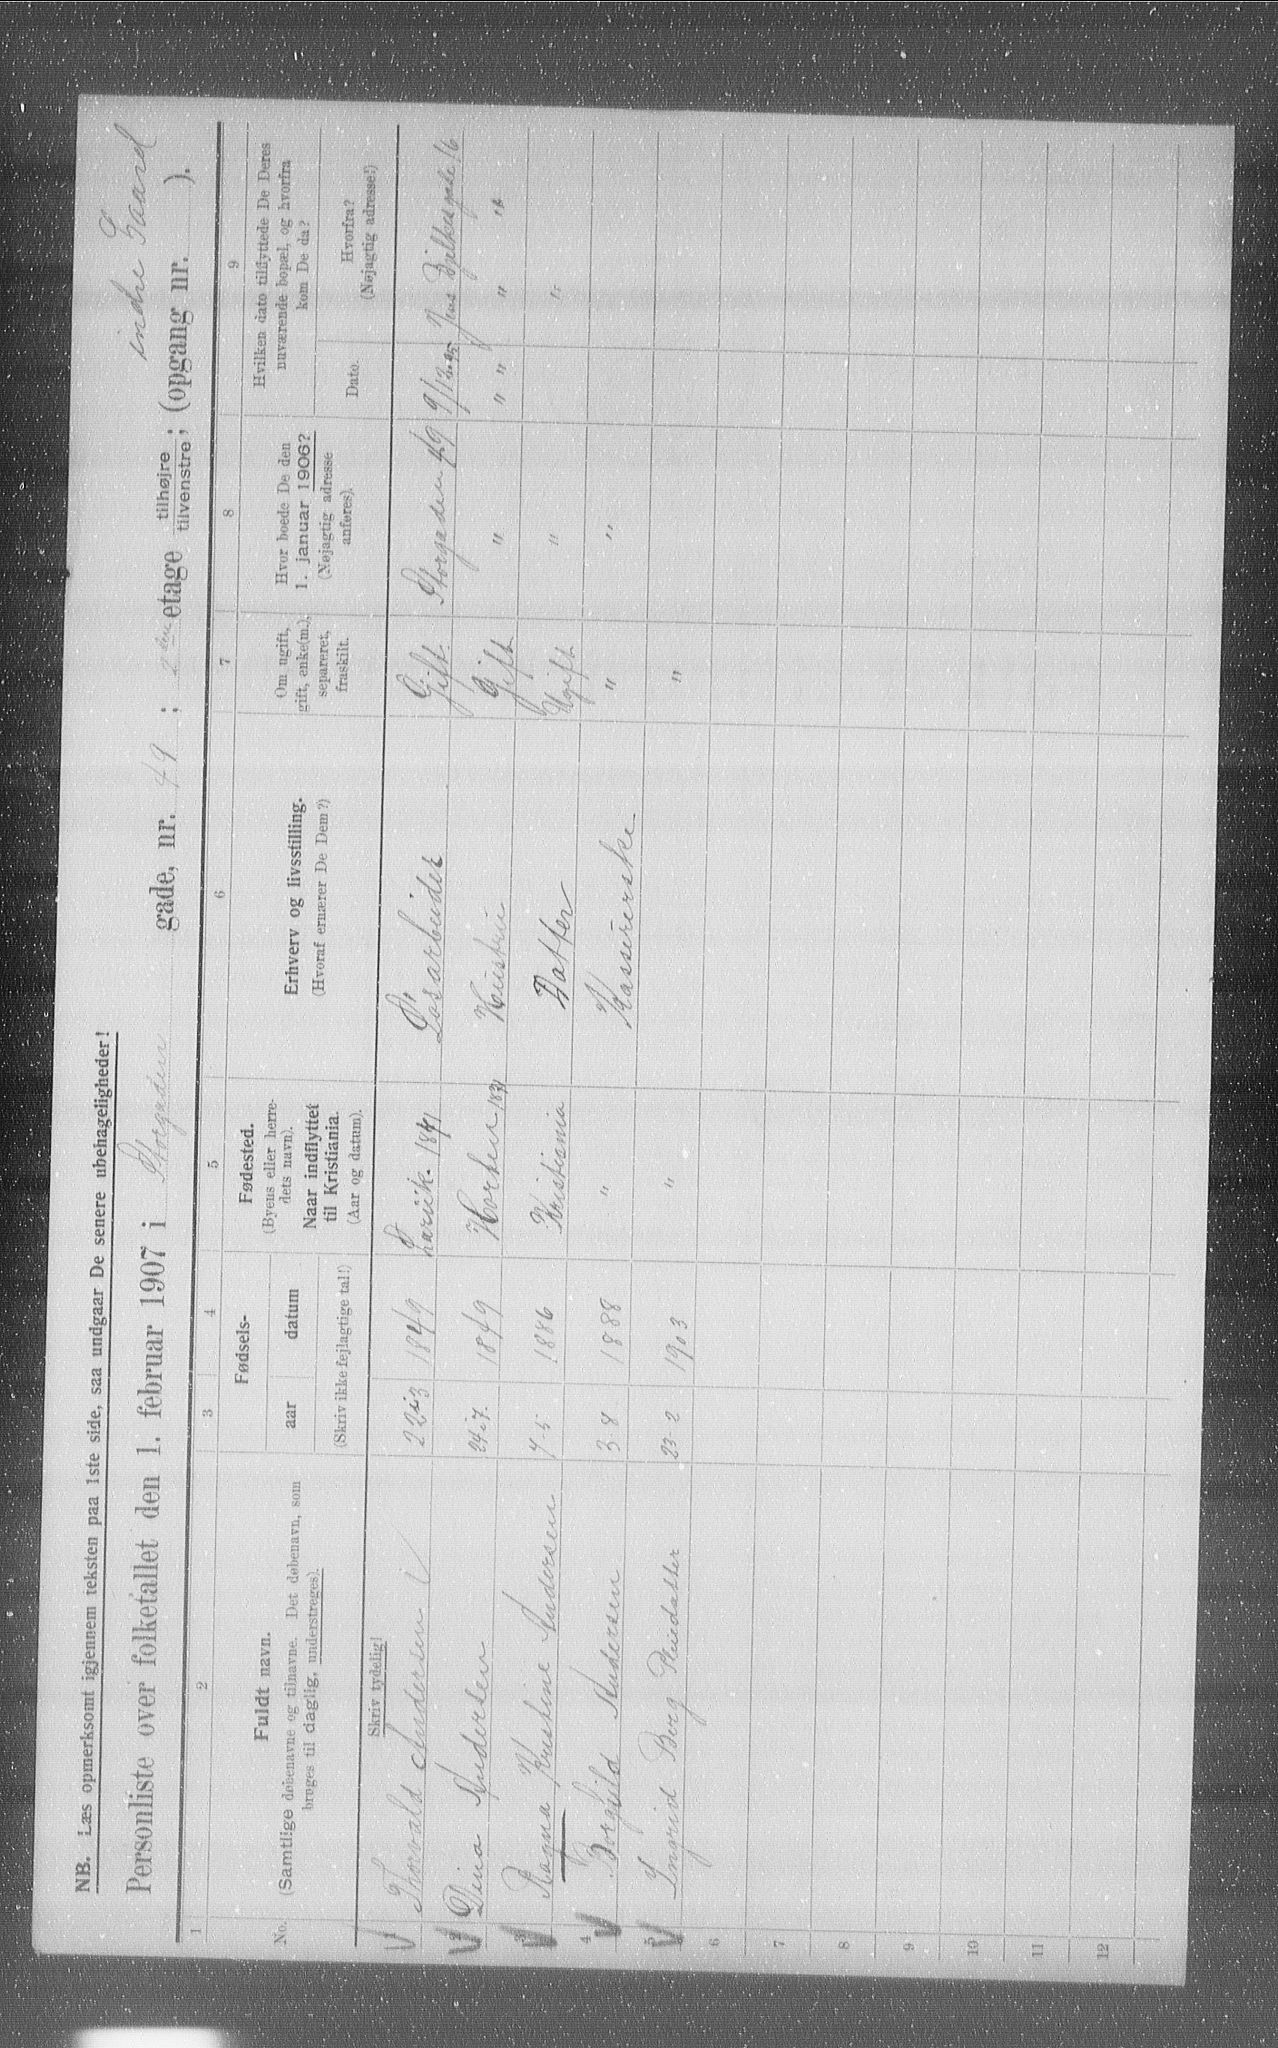 indre Gaard
NB. Læs opmerksomt igjennem teksten paa 1ste side, saa undgaar De senere ubehageligheder!
Personliste over folketallet den 1. februar 1907 i Storgaden gade, nr. 49 ; 2 den etage tilhøjre tilvenstre; (opgang nr. ).
1 2 3 4 5 6 7 8 9
No.
Fuldt navn.
(Samtlige døbenavne og tilnavne. Det døbenavn, som
bruges til daglig, understreges).
Skriv tydelig!
Fødsels-
aar datum
(Skriv ikke fejlagtige tal!)
Fødested.
(Byens eller herre-
dets navn).
Naar indflyttet
til Kristiania.
(Aar og datum).
Erhverv og livsstilling.
(Hvoraf ernærer De Dem?)
Om ugift,
gift, enke(m.),
separeret,
fraskilt.
Hvor boede De den
1. januar 1906?
(Nøjagtig adresse
anføres).
Hvilken dato tilflyttede De Deres
nuværende bopæl, og hvorfra
kom De da?
Dato.
Hvorfra?
(Nøjagtig adresse!)
1 Thorvald Andersen 22-3 1849 1871 Løsarbeider Gift. Storgaden 49 9/12 Jens Bjelkesgade 16
2 Dina Andersen 24-7. 1849 Horten Hustru Gift " " " " "
3 Ragna Kristine Andersen 4-5 1886 Kristiania Datter Ugift " "
4 Borghild Andersen 3-8 1888 " Kassererske " "
5 Ingrid Berg Pleiedatter 23-2 1903 " "
6
7
8
9
10
11
12